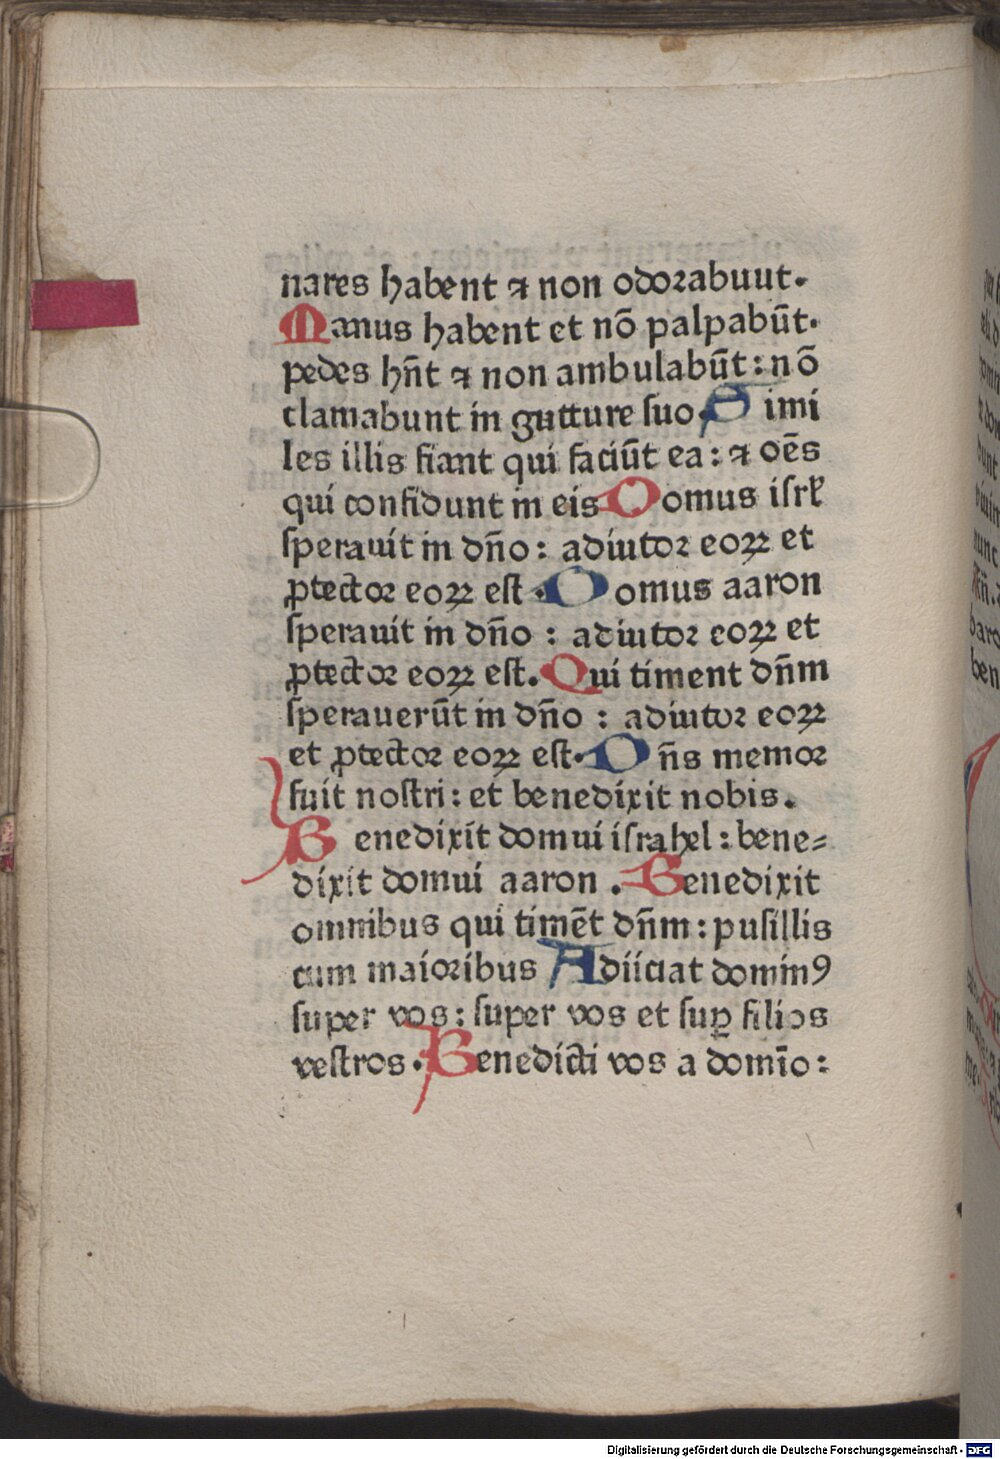 nares habent ⁊ non odoꝛabuut.
Manus habent et nō palpabūt.
pedes hn̄t ⁊ non ambulabūt : nō
clamabunt in gutture ſuo. Simi
les illis fiant qui faciūt ea : ⁊ oēs
qui confidunt in eis Domus iſrł
ſperauit in dn̄o : adiutoꝛ eoꝝ et
ꝓtectoꝛ eoꝝ eſt. Domus aaron
ſperauit in dn̄o : adiutoꝛ eoꝝ et
ꝓtectoꝛ eoꝝ eſt. Qui timent dn̄m
ſperauerūt in dn̄o : adiutoꝛ eoꝝ
et ꝓtectoꝛ eoꝝ eſt. Dn̄s memoꝛ
fuit noſtri : et benedixit nobis.
Benedixit domui iſrahel : bene⸗
dixit domui aaron . Benedixit
omnibus qui timēt dn̄m : puſillis
cum maioꝛibus Adiiciat dominꝰ
ſuper vos : ſuper vos et ſuꝑ filios
veſtros . Benedicti vos a domīo :
Digitalisierung gefördert durch die Deutsche Forschungsgemeinschaft - DFG